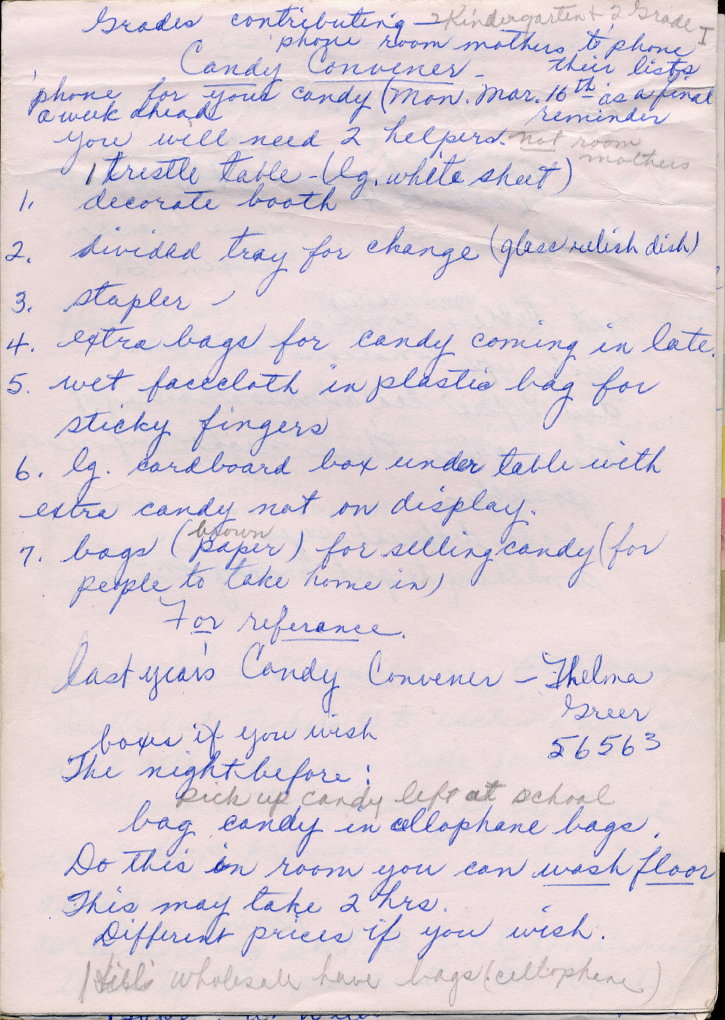 Grades contributing - 2 Kindergarten & 2 Grade I
phone room mothers to phone
Candy Convener - their lists
phone for your candy (Mon. Mar. 16th as a final
a week ahead reminder
you will need 2 helpers. not room
mothers
1 trestle table - (lg. white sheet)
1. decorate booth
2. divided tray for change (glass relish dish)
3. stapler
4. extra bags for candy coming in late.
5. wet facecloth in plastic bag for
sticky fingers
6. lg. cardboard box under table with
extra candy not on display.
brown
7. bags (paper) for selling candy (for
people to take home in)
For referance.
last year's Candy Convener - Thelma
Greer
boxes if you wish 56563
The night before:
pick up candy left at school
bag candy in cellophane bags.
Do this in room you can wash floor
This may take 2 hrs.
Different prices if you wish.
wholesale have bags (cellophane)